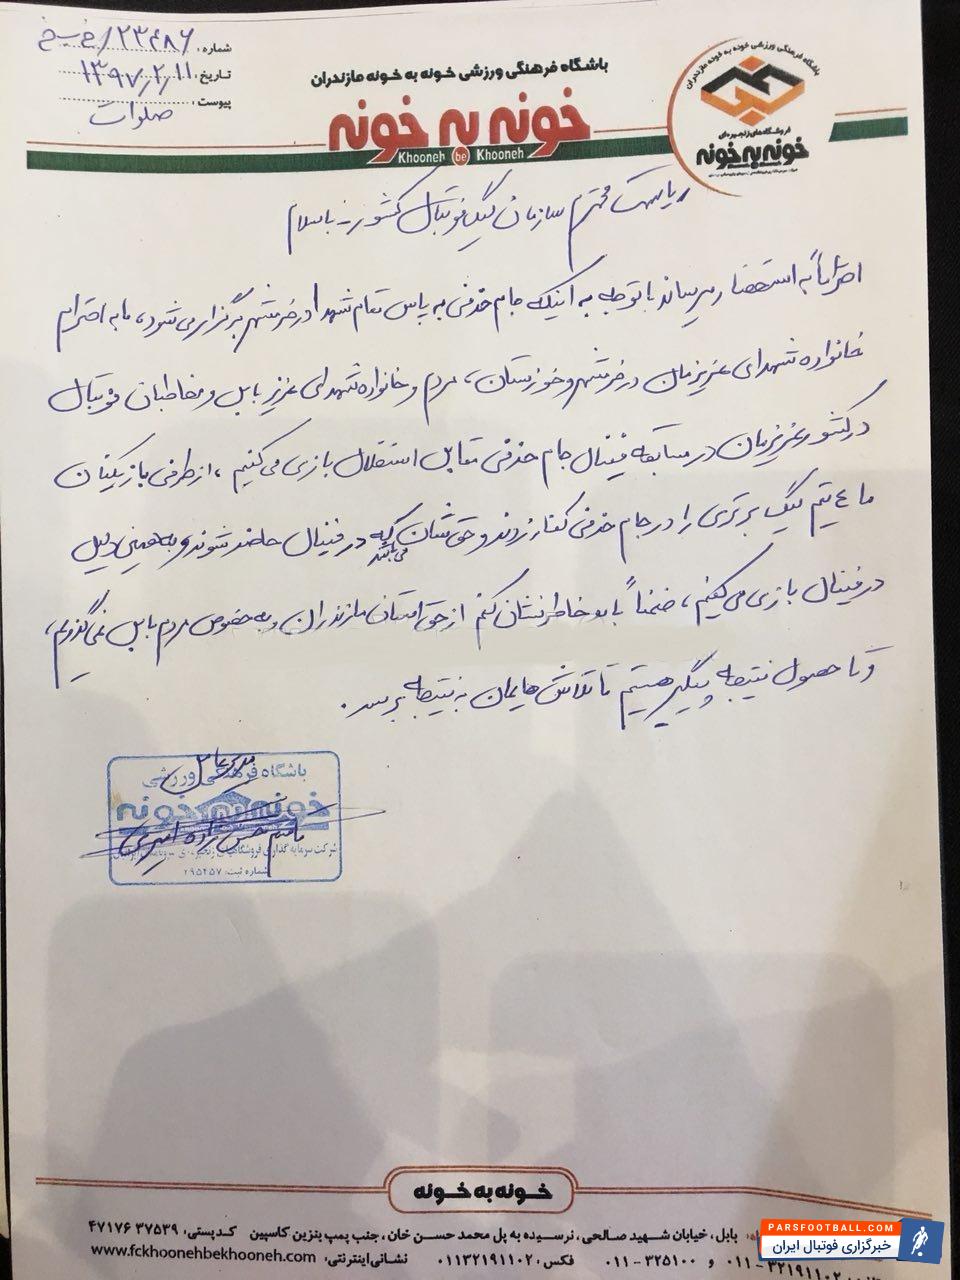 شماره: ۲۳۴۸۶/خ س خ
تاریخ: ۱۳۹۷/۲/۱۱
پیوست: صلوات
باشگاه فرهنگی ورزشی خونه به خونه مازندران
خونه به خونه
Khooneh be Khooneh
باشگاه فرهنگی ورزشی خونه به خونه مازندران
فروشگاه‌های زنجیره‌ای
خونه به خونه
ریاست محترم سازمان لیگ فوتبال کشور - با سلام
احتراماً به استحضار میرساند با توجه به اینکه جام حذفی به پاس مقام شهدا در خرمشهر برگزار می شود، ما به احترام
خانواده شهدای عزیزمان در خرمشهر و خوزستان، مردم و خانواده شهدای عزیز بابل و مخاطبان فوتبال
در کشور عزیزمان در مسابقه فینال جام حذفی مقابل استقلال بازی می کنیم، از طرفی بازیکنان
ما ۴ تیم لیگ برتری را در جام حذفی کنار زدند و حق شان می باشد که در فینال حاضر شوند و به همین دلیل
در فینال بازی می کنیم، ضمناً باید خاطر نشان کنم از حق استان مازندران و به خصوص مردم بابل نمی گذریم،
و تا حصول نتیجه پیگیر هستیم تا تلاش هایمان به نتیجه برسد.
مدیرعامل
باشگاه فرهنگی ورزشی
خونه به خونه
حسن زاده امیری
شرکت سرمایه گذاری فروشگاههای زنجیره ای
شماره ثبت: ۲۹۵۲۵۷
خونه به خونه
بابل، خیابان شهید صالحی، نرسیده به پل محمد حسن خان، جنب پمپ بنزین کاسپین کدپستی: ۳۷۵۳۹ ۴۷۱۷۶
۰۱۱-۳۲۱۹۱۱۰۲ و ۰۱۱-۳۲۵۱۰۰ فکس: ۰۱۱۳۲۱۹۱۱۰۲ نشانی اینترنتی: www.fckhoonehbekhooneh.com
PARSFOOTBALL.COM
خبرگزاری فوتبال ایران